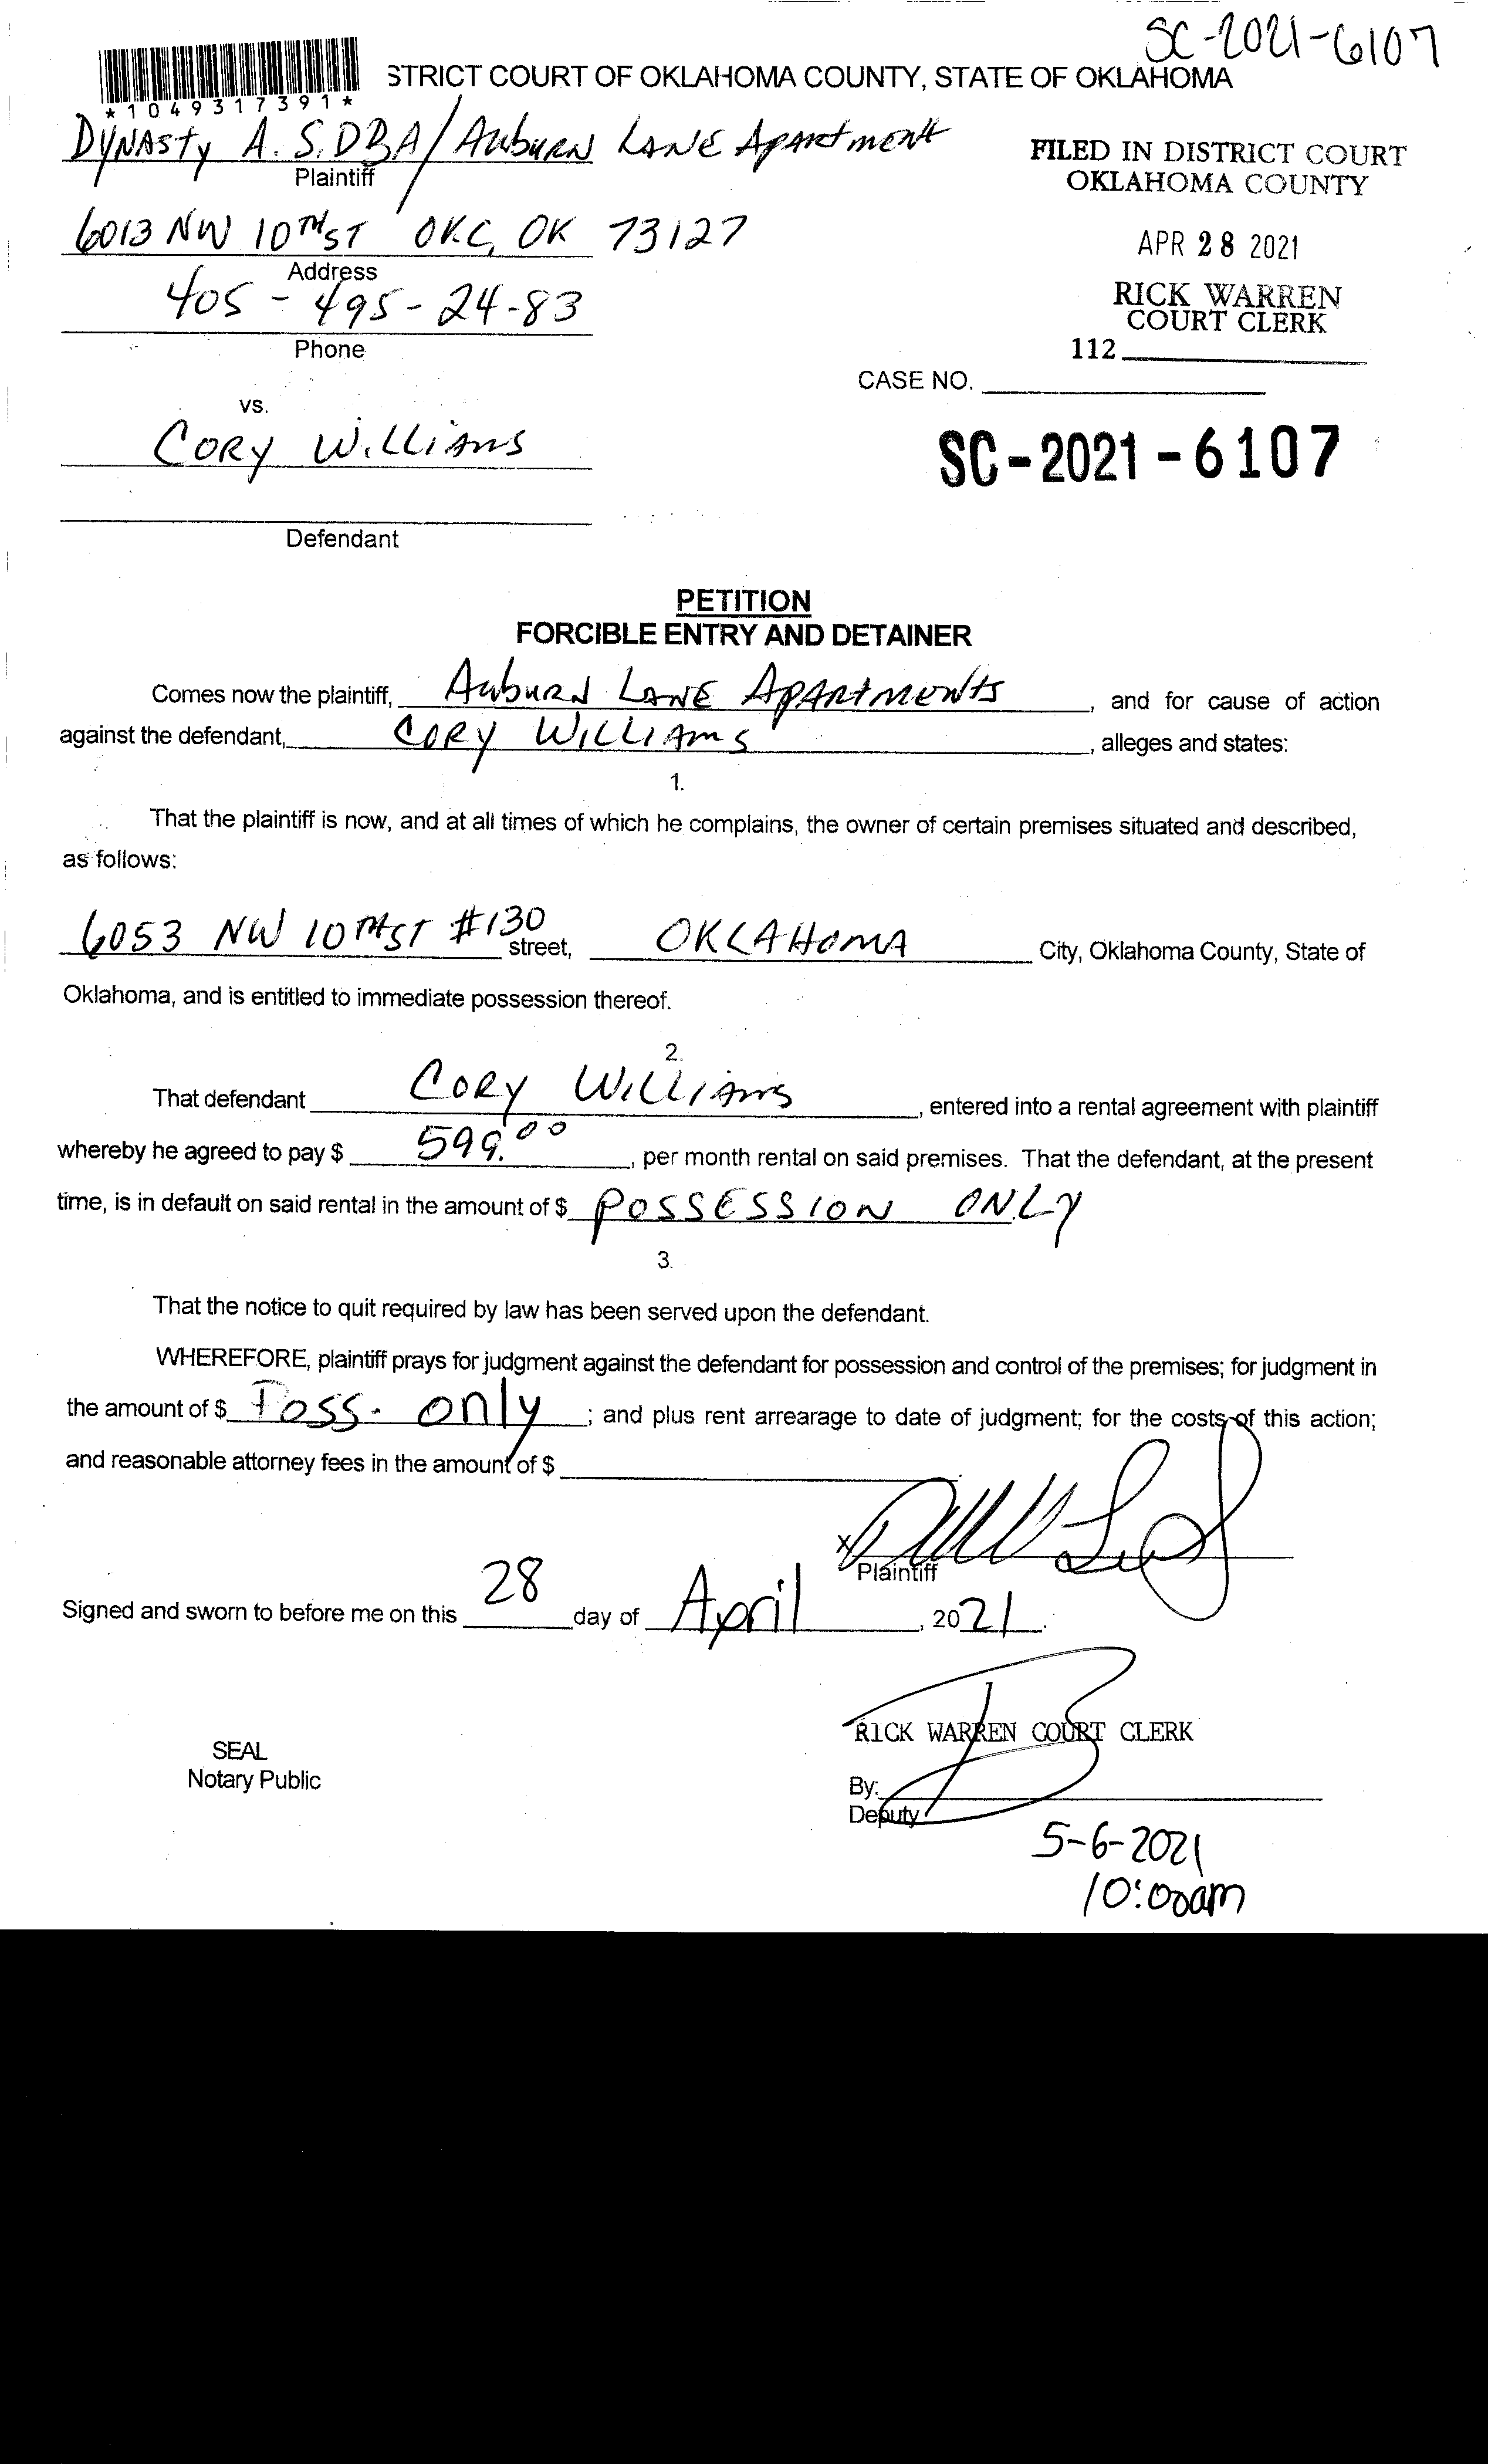 SC-2021-6107
STRICT COURT OF OKLAHOMA COUNTY, STATE OF OKLAHOMA
*1049317391*
DYNASTY A. S. DBA/ AUBURN LANE APARTMENT
Plaintiff
FILED IN DISTRICT COURT
OKLAHOMA COUNTY
6013 NW 10TH ST OKC, OK 73127
Address
APR 28 2021
405-495-24-83
Phone
RICK WARREN
COURT CLERK
112
CASE NO.
vs.
CORY WILLIAMS
SC-2021-6107
Defendant
PETITION
FORCIBLE ENTRY AND DETAINER
Comes now the plaintiff, AUBURN LANE APARTMENTS, and for cause of action
against the defendant, CORY WILLIAMS, alleges and states:
1.
That the plaintiff is now, and at all times of which he complains, the owner of certain premises situated and described,
as follows:
6053 NW 10TH ST #130 street, OKLAHOMA City, Oklahoma County, State of
Oklahoma, and is entitled to immediate possession thereof.
2.
That defendant CORY WILLIAMS, entered into a rental agreement with plaintiff
whereby he agreed to pay $ 599.00, per month rental on said premises. That the defendant, at the present
time, is in default on said rental in the amount of $ POSSESSION ONLY
3.
That the notice to quit required by law has been served upon the defendant.
WHEREFORE, plaintiff prays for judgment against the defendant for possession and control of the premises; for judgment in
the amount of $ Poss. only; and plus rent arrearage to date of judgment; for the costs of this action;
and reasonable attorney fees in the amount of $
X
Plaintiff
Signed and sworn to before me on this 28 day of April, 2021.
RICK WARREN COURT CLERK
SEAL
Notary Public
By:
Deputy
5-6-2021
10:00am